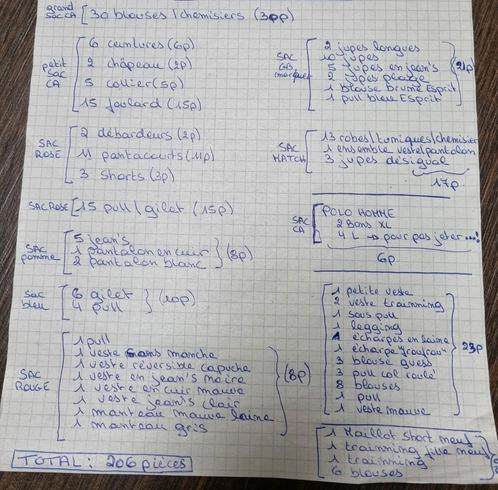 grand sac CA [30 blouses / chemisiers (30p)
petit sac CA
6 ceintures (6p)
2 châpeau (2p)
5 collier (5p)
15 foulard (15p)
SAC ROSE
2 débardeurs (2p)
11 pantacourts (11p)
3 shorts (3p)
SAC ROSE [15 pull / gilet (15p)
SAC pomme
5 jean's
1 pantalon en cuir
2 pantalon blanc
(8p)
Sac bleu
6 gilet
4 pull
(10p)
SAC ROUGE
1 pull
1 veste sans manche
1 veste réversible capuche
1 veste en jean's noire
1 veste en cuir mauve
1 veste jean's clair
1 manteau mauve laine
1 manteau gris
(8p)
TOTAL : 206 pièces
SAC GB
2 jupes longues
10 jupes
5 jupes en jean's
2 jupes plage
1 blouse brune Esprit
1 pull bleu Esprit
21p
SAC MATCH
13 robes / tuniques / chemisier
1 ensemble veste / pantalon
3 jupes désigual
17p.
SAC CA
POLO HOMME
2 Bons XL
4 L → pour pas jeter...!
6p
1 petite veste
2 veste trainning
1 sous pull
1 legging
1 écharpes en laine
1 écharpe "froufrou"
3 blouse guess
3 pull col roulé
8 blouses
1 pull
1 veste mauve
23p
1 Maillot short neuf
1 trainning neuf
1 trainning
6 blouses